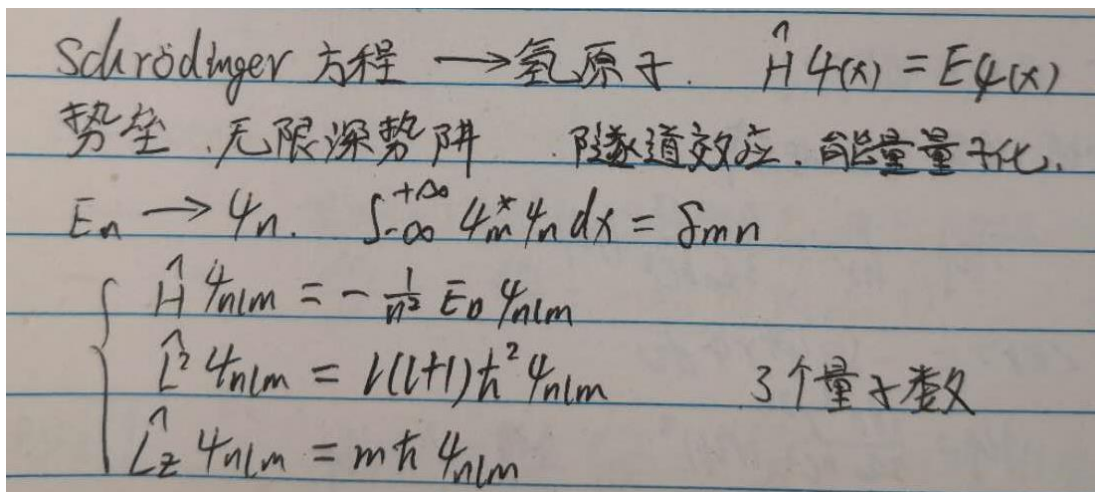 Schrödinger 方程 → 氢原子. Ĥψ(x) = Eψ(x)
势垒、无限深势阱 . 隧道效应、能量量子化.
Eₙ → ψₙ. ∫₋∞⁺∞ ψₘ*ψₙ dx = δₘₙ
Ĥψₙₗₘ = -1/n² E₀ ψₙₗₘ
L̂²ψₙₗₘ = l(l+1)ħ²ψₙₗₘ 3个量子数
L̂_z ψₙₗₘ = mħ ψₙₗₘ